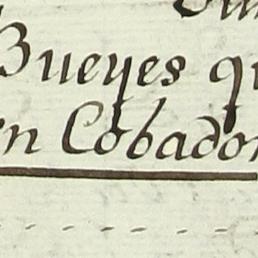 Bueyes qu
en Cobador